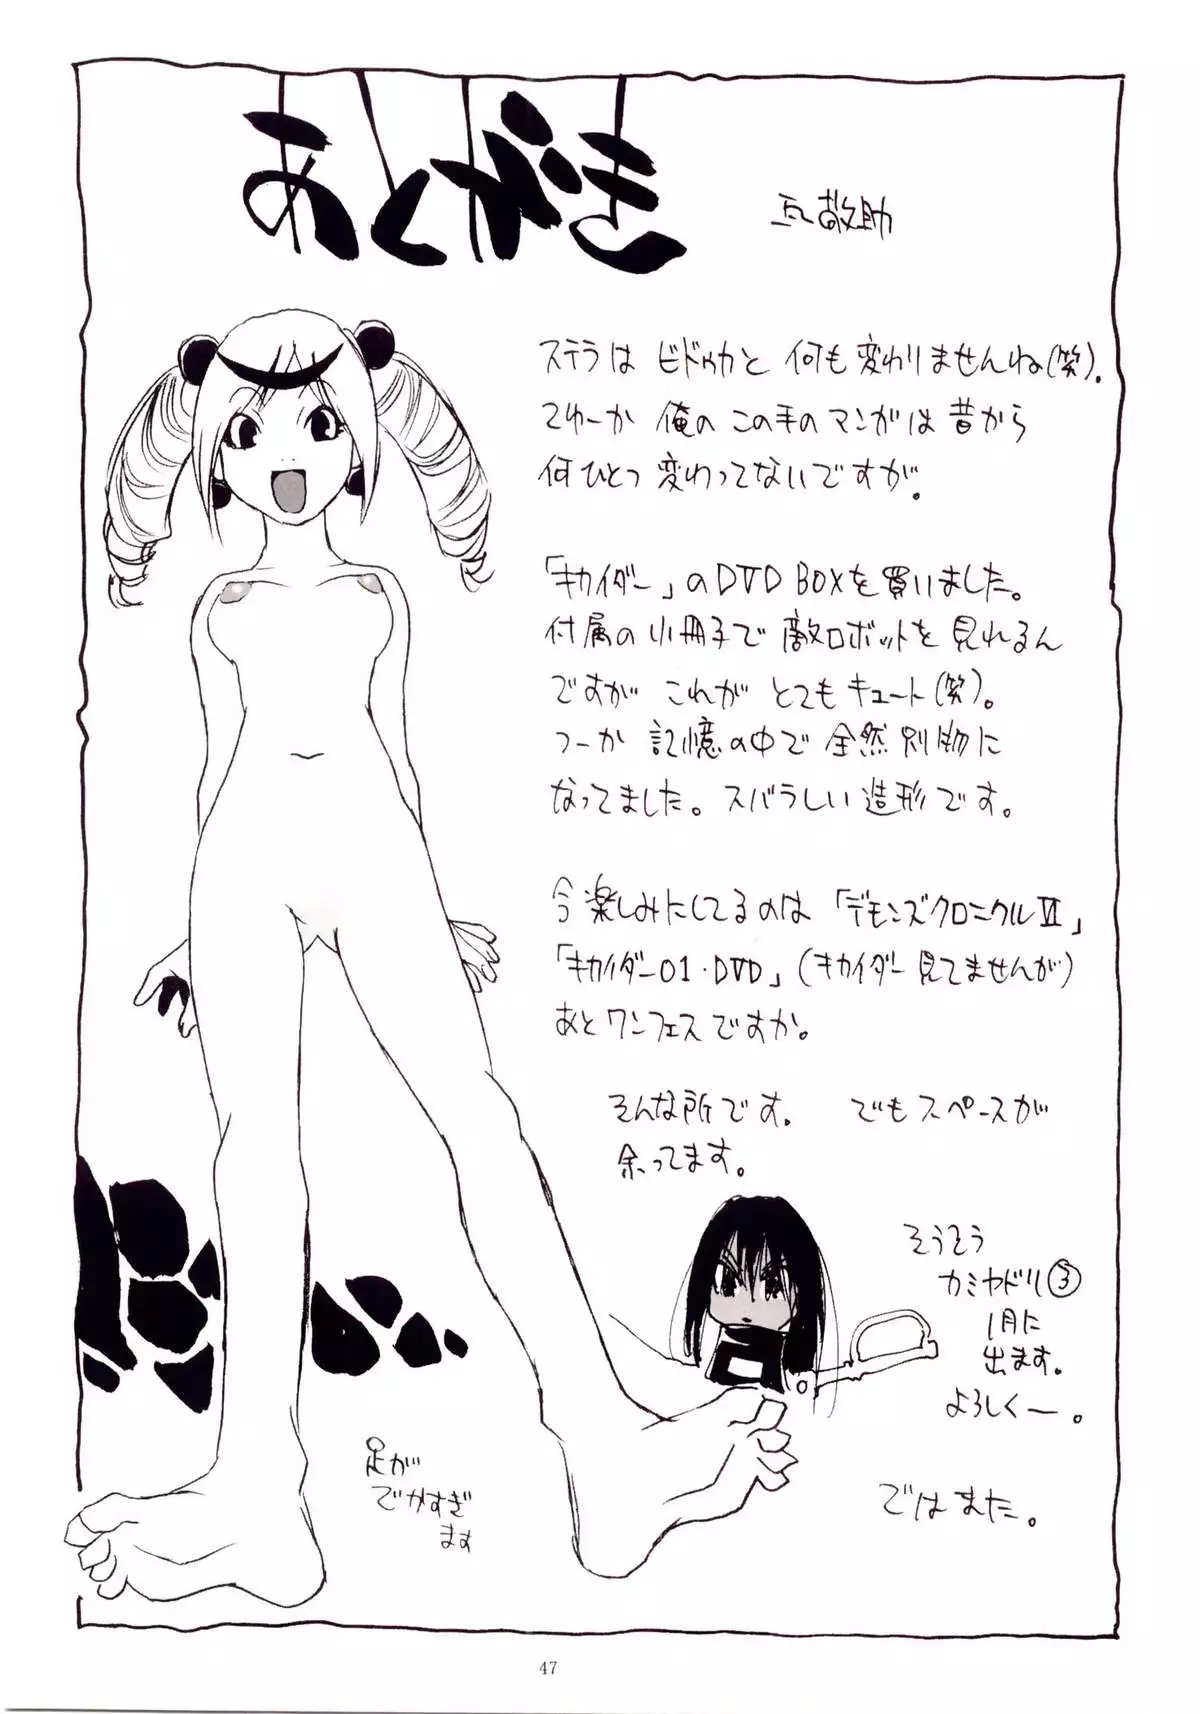 あとがき
瓦敬助
ステラは ビドゥカと 何も変わりませんね(笑)。
てゆーか 俺の この手のマンガは 昔から
何ひとつ 変わってないですが。
「キカイダー」のDVD BOXを買いました。
付属の小冊子で 敵ロボットを 見れるん
ですが これが とてもキュート(笑)。
つーか 記憶の中で 全然別物に
なってました。スバラしい造形です。
今楽しみにしてるのは 「デモンズクロニクルⅥ」
「キカイダー01・DVD」(キカイダー見てませんが)
あとワンフェスですか。
そんな所です。 でもスペースが
余ってます。
そうそう
カミヤドリ③
1月に
出ます。
よろしくー。
足が
でかすぎ
ます
ではまた。
47